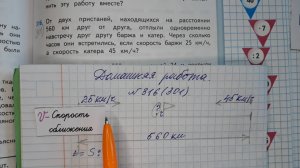 нить эту работу вместе?
От двух пристаней, находящихся на расстоянии
560 км друг от друга, отплыли одновременно
навстречу друг другу баржа и катер. Через сколько
часов они встретились, если скорость баржи 25 км/ч,
а скорость катера 45 км/ч?
-12
-7
Домашняя работа
№316(201)
25км/ч
45км/ч
?
V- Скорость
сближения
560 км
t= S: